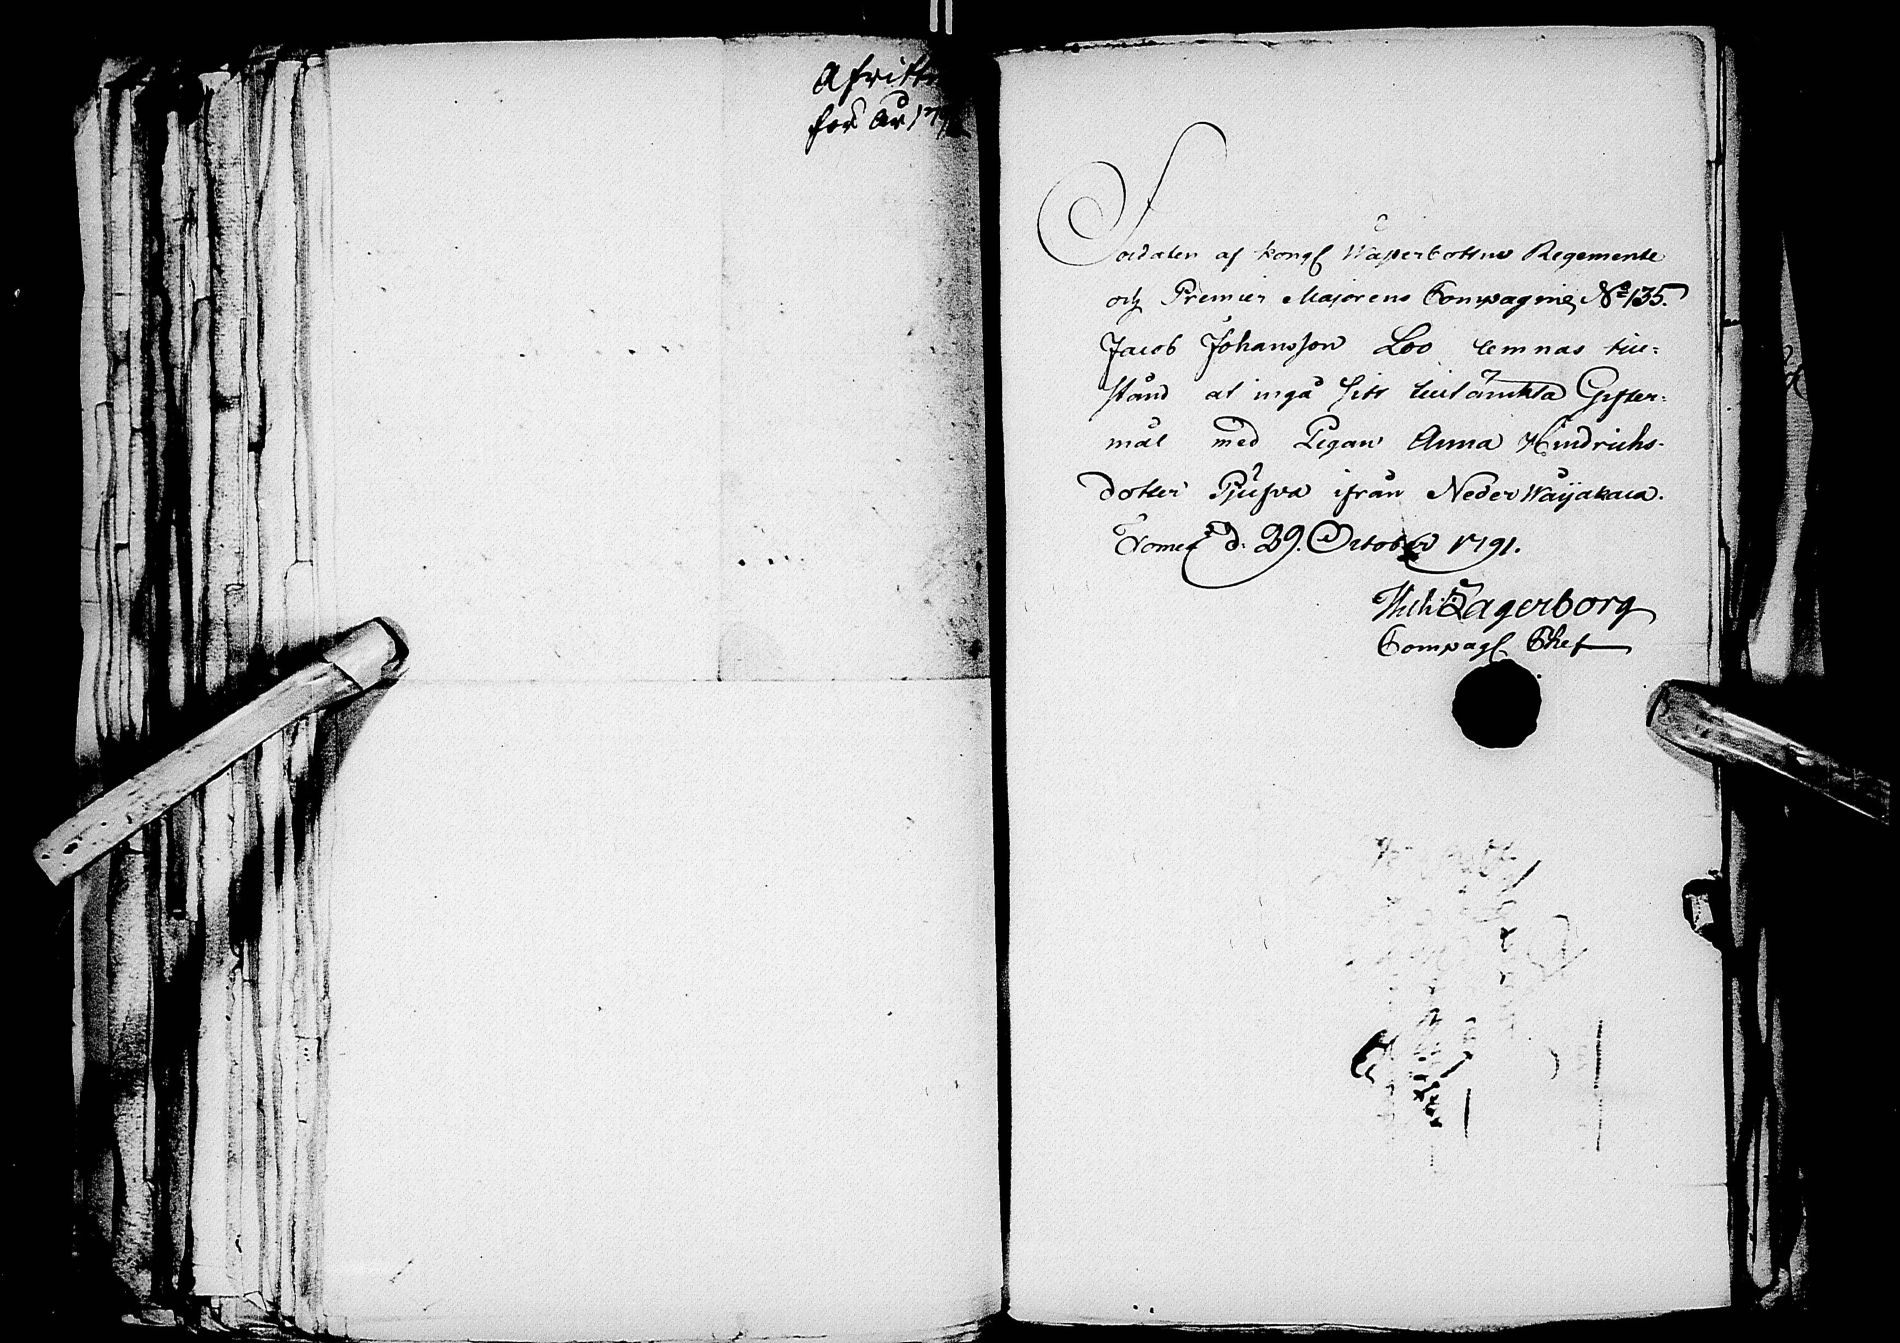 för År 17
Soldaten af Kongl Wästerbottns Regemente
och Premier Majorens Compagnie, No 135.
Jacob Johansson Loo lemnas till-
stånd at ingå sitt tilltänkta Gifter-
mål med Pigan Anna Hindrichs-
dotter ifrån Neder
d. 29. October 1791.
Lagerborg
Compag Chef